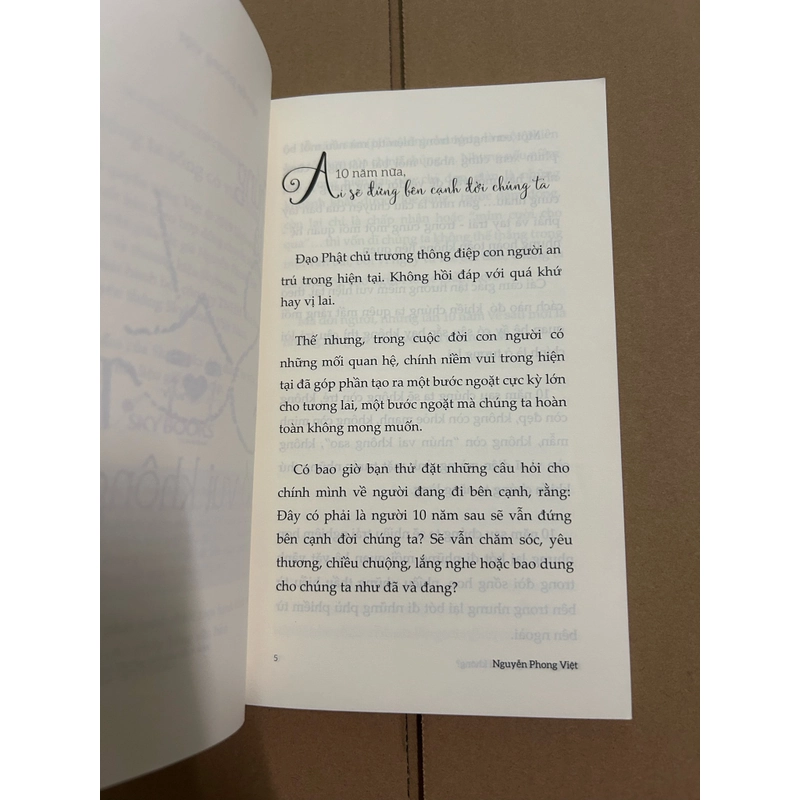 10 năm nữa,
Ai sẽ đứng bên cạnh đời chúng ta
Đạo Phật chủ trương thông điệp con người an
trú trong hiện tại. Không hồi đáp với quá khứ
hay vị lai.
Thế nhưng, trong cuộc đời con người có
những mối quan hệ, chính niềm vui trong hiện
tại đã góp phần tạo ra một bước ngoặt cực kỳ lớn
cho tương lai, một bước ngoặt mà chúng ta hoàn
toàn không mong muốn.
Có bao giờ bạn thử đặt những câu hỏi cho
chính mình về người đang đi bên cạnh, rằng:
Đây có phải là người 10 năm sau sẽ vẫn đứng
bên cạnh đời chúng ta? Sẽ vẫn chăm sóc, yêu
thương, chiều chuộng, lắng nghe hoặc bao dung
cho chúng ta như đã và đang?
5
Nguyễn Phong Việt